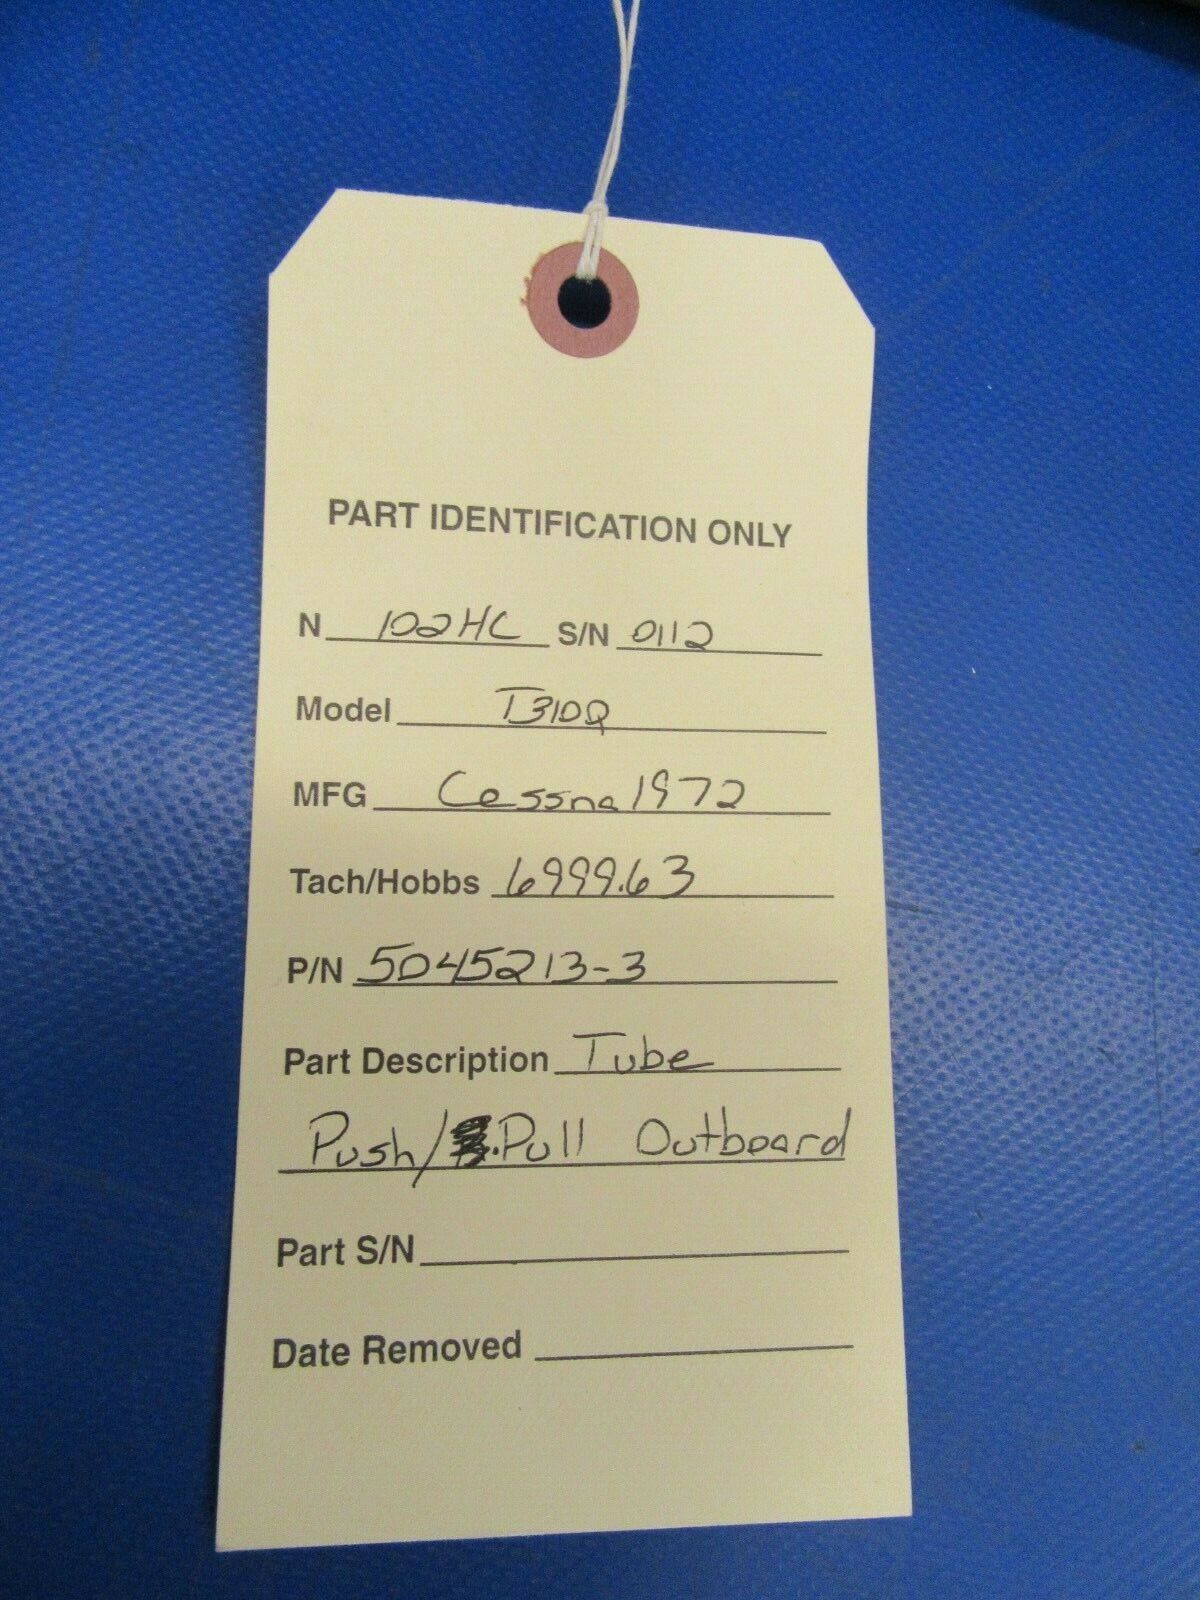 PART IDENTIFICATION ONLY
N 102HC S/N 0112
Model T310Q
MFG Cessna 1972
Tach/Hobbs 6999.63
P/N 5045213-3
Part Description Tube
Push/Pull Outboard
Part S/N
Date Removed